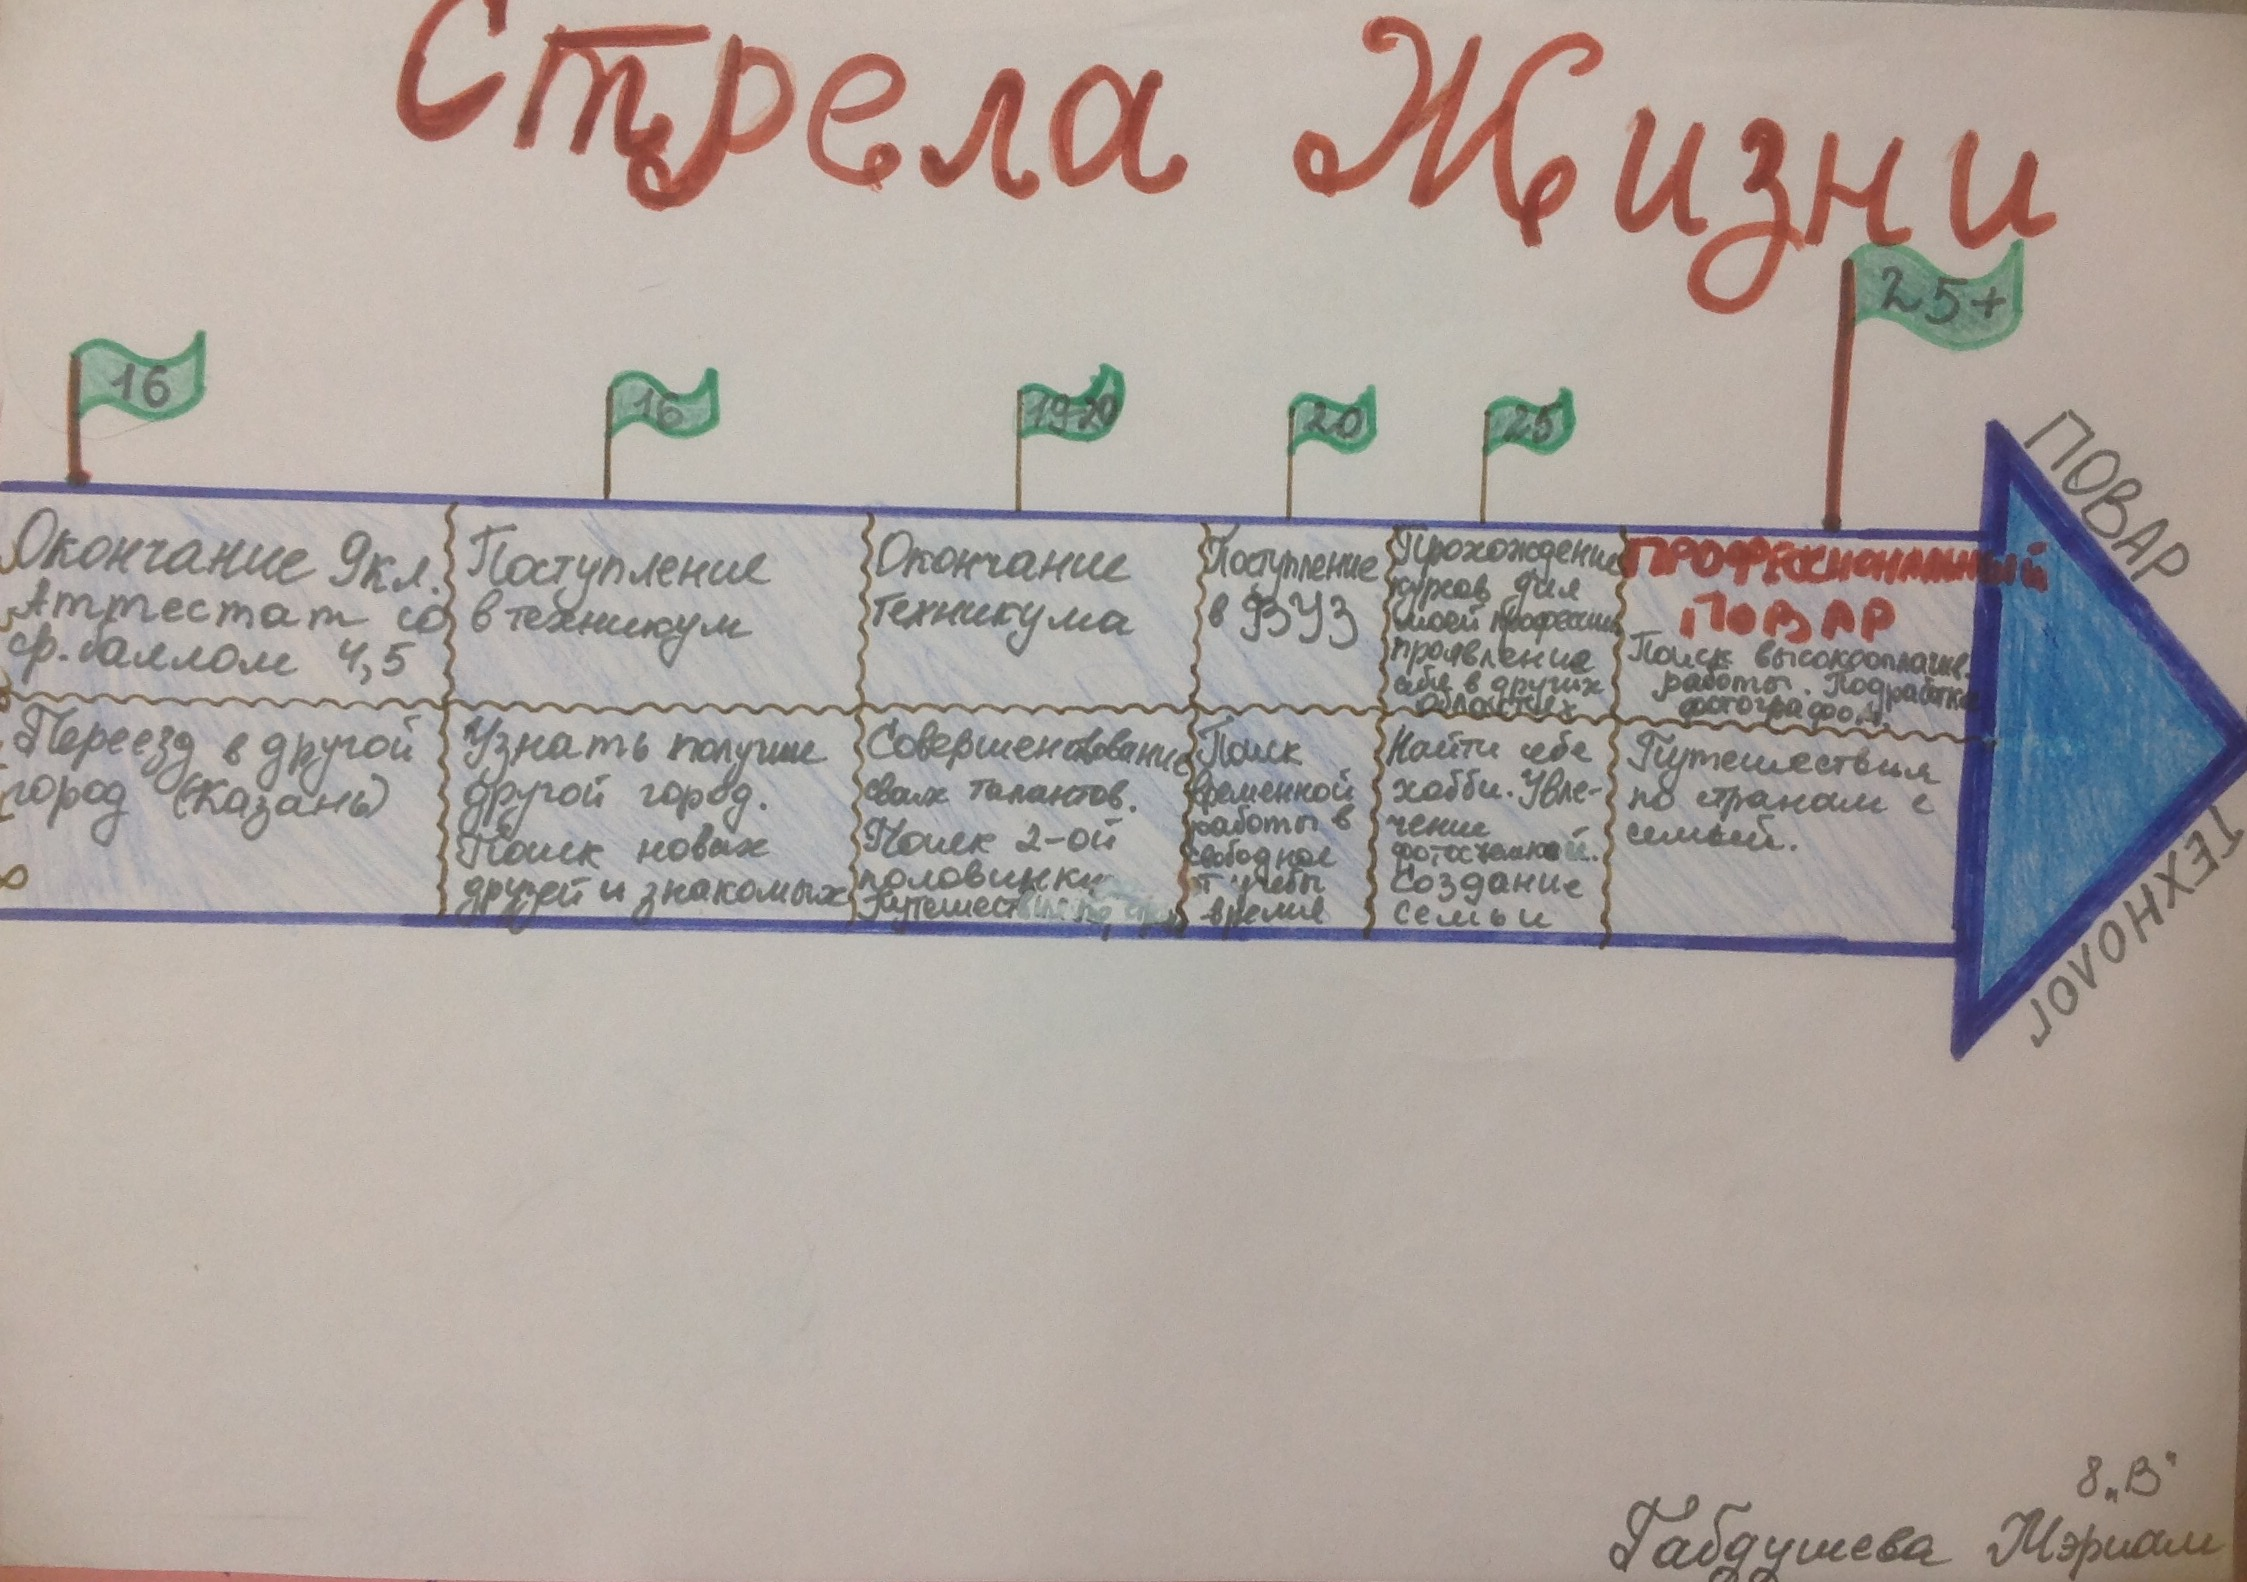 Стрела Жизни
16
16
19-20
20
25
25+
Окончание 9кл.
Аттестат со
ср. баллом 4,5
Поступление
в техникум
Окончание
техникума
Поступление
в ВУЗ
Прохождение
курсов для
моей профессии
проявление
себя в других
областях
ПРОФЕССИОНАЛЬНЫЙ
ПОВАР
Поиск высокооплачив.
работы. Подработка
фотографом.
Переезд в другой
город (Казань)
Узнать получше
другой город.
Поиск новых
друзей и знакомых
Совершенствование
своих талантов.
Поиск 2-ой
половинки
Поиск
временной
работы в
свободное
от учебы
время
Найти себе
хобби. Увле-
чение
фотосъемкой.
Создание
семьи
Путешествия
по странам с
семьей.
ПОВАР
ТЕХНОЛОГ
8„В"
Габдушева Мэриам